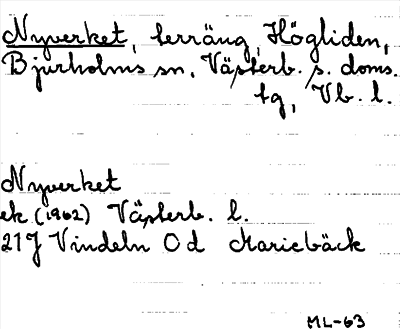 Nyverket, terräng, Högliden,
Bjurholms sn, Västerb. s. doms.
tg, Vb. l.
Nyverket
ek (1962) Västerb. l.
21J Vindeln 0 d Mariebäck
ML-63